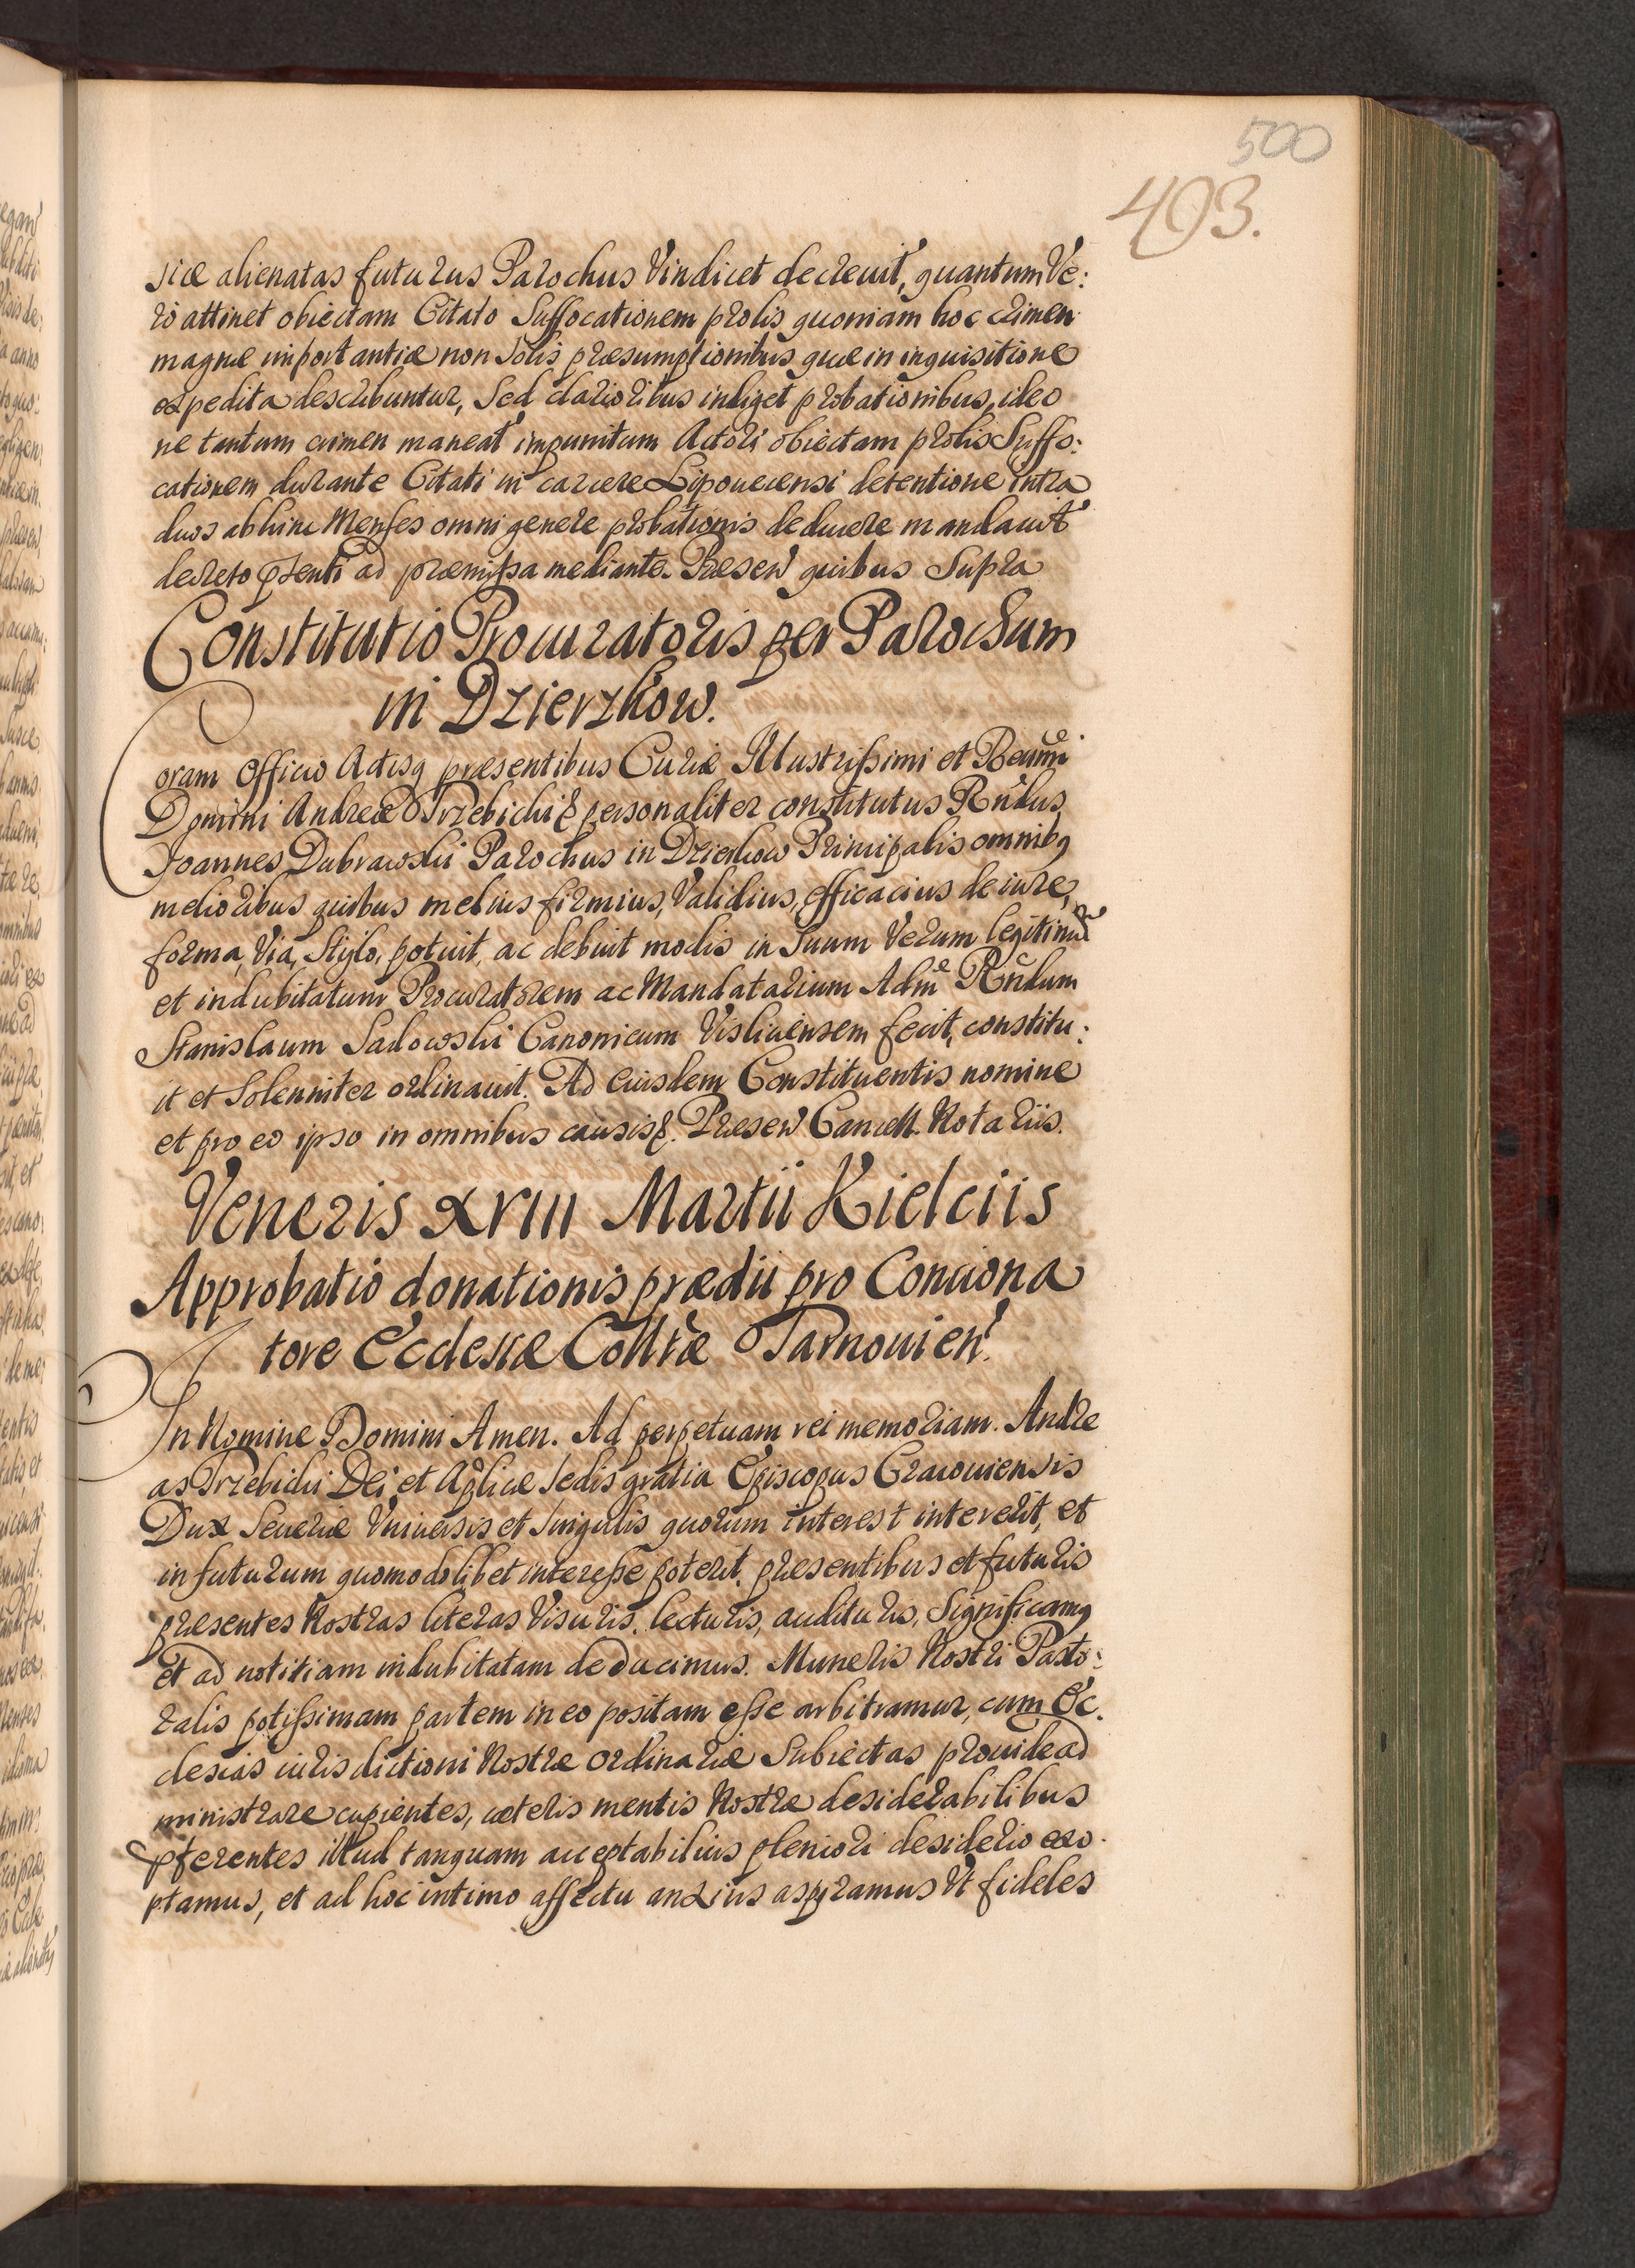 500
493.
siæ alienatas futurus Parochus Vindicet decreuit, quantum Ve:
ro attinet obiectam Citato Suffocationem prolis quoniam hoc crimen
magnæ importantiæ non Solis præsumptionibus quæ in inquisitione
expedita describuntur, Sed clarioribus indiget probationibus, ideo
ne tantum crimen maneat impunitum Actori obiectam prolis Suffo:
cationem durante Citati in carcere Lipouecensi detentione intra
duos abhinc Menses omni genere probationis deducere mandauit
decreto pnti ad præmissa mediante. Præsen quibus Supra
Constitutio Procuratoris per Parochum
in Dzierzkow.
Coram Officio Actisq præsentibus Curiæ Illustrissimi et Reumi
Domini Andreæ Trzebicki & personaliter constitutus Rndus
Joannes Dubrawski Parochus in Dzierkow Principalis omnibq
melioribus quibus melius firmius, Validius, efficacius de iure,
forma, Via, Stylo, potuit, ac debuit modis in Suum Verum legitimum
et indubitatum Procuratorem ac Mandatarium Adm Rndum
Stanislaum Sadowski Canonicum Visliciensem fecit, constitu:
it et Solenniter ordinauit. Ad Eiusdem Constituentis nomine
et pro eo ipso in omnibus causis &. Præsen Cancell. Notariis.
Veneris XVIII Martii Kielciis
Approbatio donationis prædii pro Conciona
tore Ecclesiæ Collræ Tarnouien.
In Nomine Domini Amen. Ad perpetuam rei memoriam. Andre
as Trzebicki Dei et Aplicæ Sedis gratia Episcopus Cracouiensis
Dux Seueriæ Vniuersis et Singulis quorum interest intererit, et
in futurum quomodolibet interesse poterit, præsentibus et futuris
præsentes Nostras literas Visuris, lecturis, audituris, Significamq
et ad notitiam indubitatam deducimus. Muneris Nostri Pasto:
ralis potissimam partem in eo positam esse arbitramur, cum Ec
clesias iurisdictioni Nostræ Ordinariæ Subiectas prouide ad
ministrare cupientes, cæteris mentis Nostræ desiderabilibus
pferentes illud tanquam acceptabilius pleniori desiderio exo
ptamus, et ad hoc intimo affectu anxius aspiramus Vt fideles